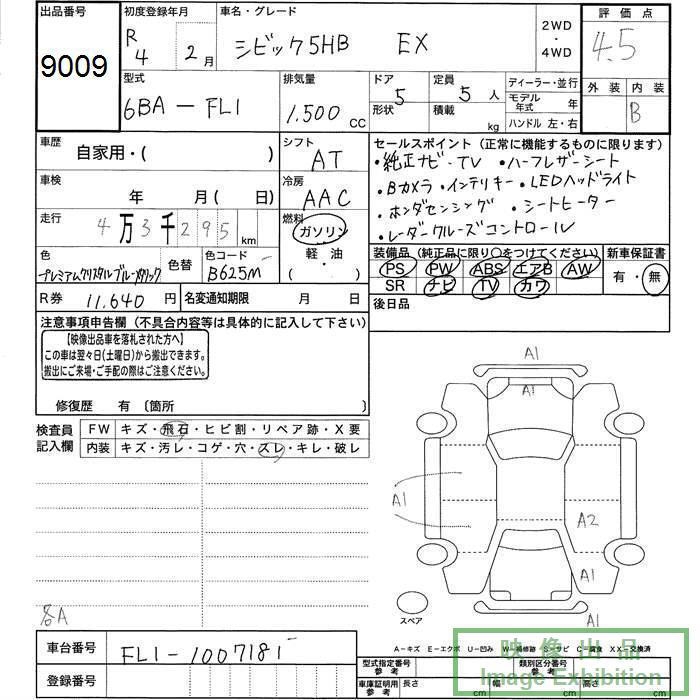 出品番号 初度登録年月 車名・グレード 2WD ・ 4WD 評価点
9009 R 4 2月 シビック5HB EX 4.5
型式 排気量 ドア 5 定員 5人 ディーラー・並行 外装 内装
6BA－FL1 1.500 cc 形状 積載 kg モデル年式 年 B
ハンドル 左・右
車歴 自家用・( ) シフト AT セールスポイント (正常に機能するものに限ります)
・純正ナビ・TV ・ハーフレザーシート
車検 年 月(日) 冷房 AAC ・Bカメラ・インテリキー・LEDヘッドライト
・ホンダセンシング ・シートヒーター
走行 4万3千295km 燃料 ガソリン ・レーダークルーズコントロール
軽油
( )
色 プレミアムクリスタルブルーメタリック 色替 色コード B625M 装備品(純正品に限り○をつけてください) 新車保証書
PS PW ABS エアB AW 有・無
SR ナビ TV カワ
R券 11.640円 名変通知期限 月 日 後日品
注意事項申告欄 (不具合内容等は具体的に記入して下さい)
【映像出品車を落札された方へ】
この車は翌々日(土曜日)から搬出できます。
搬出にご来場・ご手配の際はご注意ください。
修復歴 有 〔箇所 〕
検査員記入欄 FW キズ・飛石・ヒビ割・リペア跡・X要
内装 キズ・汚レ・コゲ・穴・スレ・キレ・破レ
A1
A1
A1
A2
A1
A1
スペア
各A
車台番号 FL1-1007181
登録番号
A－キズ E－エクボ U－凹み W－補修跡 S－サビ C－腐食 XX－交換済
型式指定番号 参考 類別区分番号 参考
車庫証明用 参考 長さ cm 幅 cm 高さ cm
映像出品
Image Exhibition